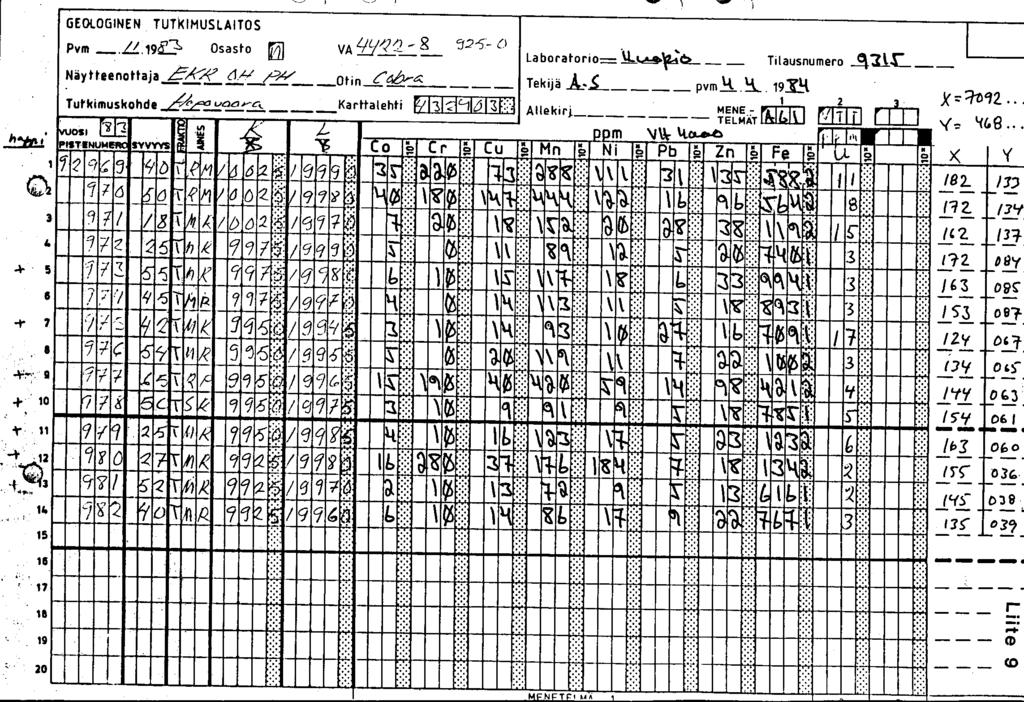 GEOLOGINEN TUTKIMUSLAITOS
Pvm __.11.1983 Osasto VA 4422-8 925-0
Laboratorio Kuopio Tilausnumero 9315
Näytteenottaja EKR OH PH Otin Cobra
Tekijä A.S pvm 4.4.1984
Tutkimuskohde Hepovaara Karttalehti
Allekirj. MENETELMÄT A61 1 2 3
X=7092...
Y=468...
VUOSI 83 K L ppm
PISTENUMERO SYVYYS FRAKTIO AINES Co Cr Cu Mn Ni Pb Zn Fe U X Y
1 92969 40 TRM 10025 19990 35 220 73 288 111 31 135 5882 11 182 133
2 970 50 TRM 10025 19980 40 180 147 444 122 16 96 5642 8 172 134
3 971 18 TMR 10025 19970 7 20 18 152 20 28 38 1192 15 162 137
4 972 25 TMR 9975 19990 5 0 11 89 12 5 20 7401 3 172 084
+ 5 973 55 TMR 9975 19980 6 10 15 117 18 6 33 9941 3 163 085
6 45 TMR 9975 19970 4 0 14 113 11 5 18 8931 3 153 087
+ 7 975 42 TMR 9950 19945 3 10 14 93 10 27 16 7091 17 124 067
8 976 54 TMR 9950 19955 5 0 20 119 11 7 22 1002 3 134 065
+ 9 977 65 9950 19965 15 190 40 420 59 14 98 4212 4 144 063
+ 10 978 TSR 9950 19975 3 10 9 91 9 5 18 7851 5 154 061
+ 11 979 25 TMR 9950 19985 4 10 16 123 17 5 23 1232 6 163 060
+ 12 980 27 TMR 9925 19980 16 280 37 176 184 7 18 1342 2 155 036
+ 13 981 52 TMR 9925 19970 2 10 13 72 9 5 13 6161 2 145 038
14 982 40 TMR 9925 19960 6 10 14 86 17 9 22 7671 3 135 039
15
16
17
18
19
20
Liite 9
MENETELMÄ 1